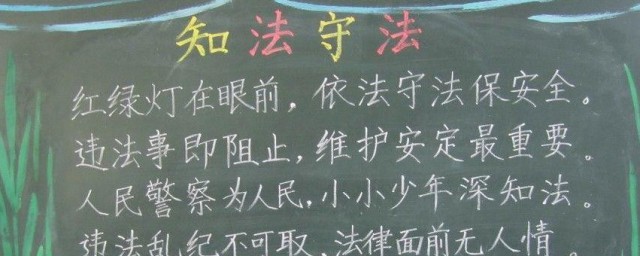 知法守法
红绿灯在眼前，依法守法保安全。
违法事即阻止，维护安定最重要。
人民警察为人民，小小少年深知法。
违法乱纪不可取、法律面前无人情。